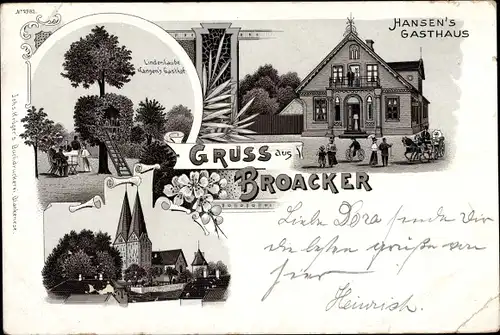 No 1392.
HANSEN'S
GASTHAUS
Lindenlaube
Hansen's Gasthof
GRUSS aus
BROACKER
Liebe Dora sende dir
die besten grüße von
hier
Heinrich.